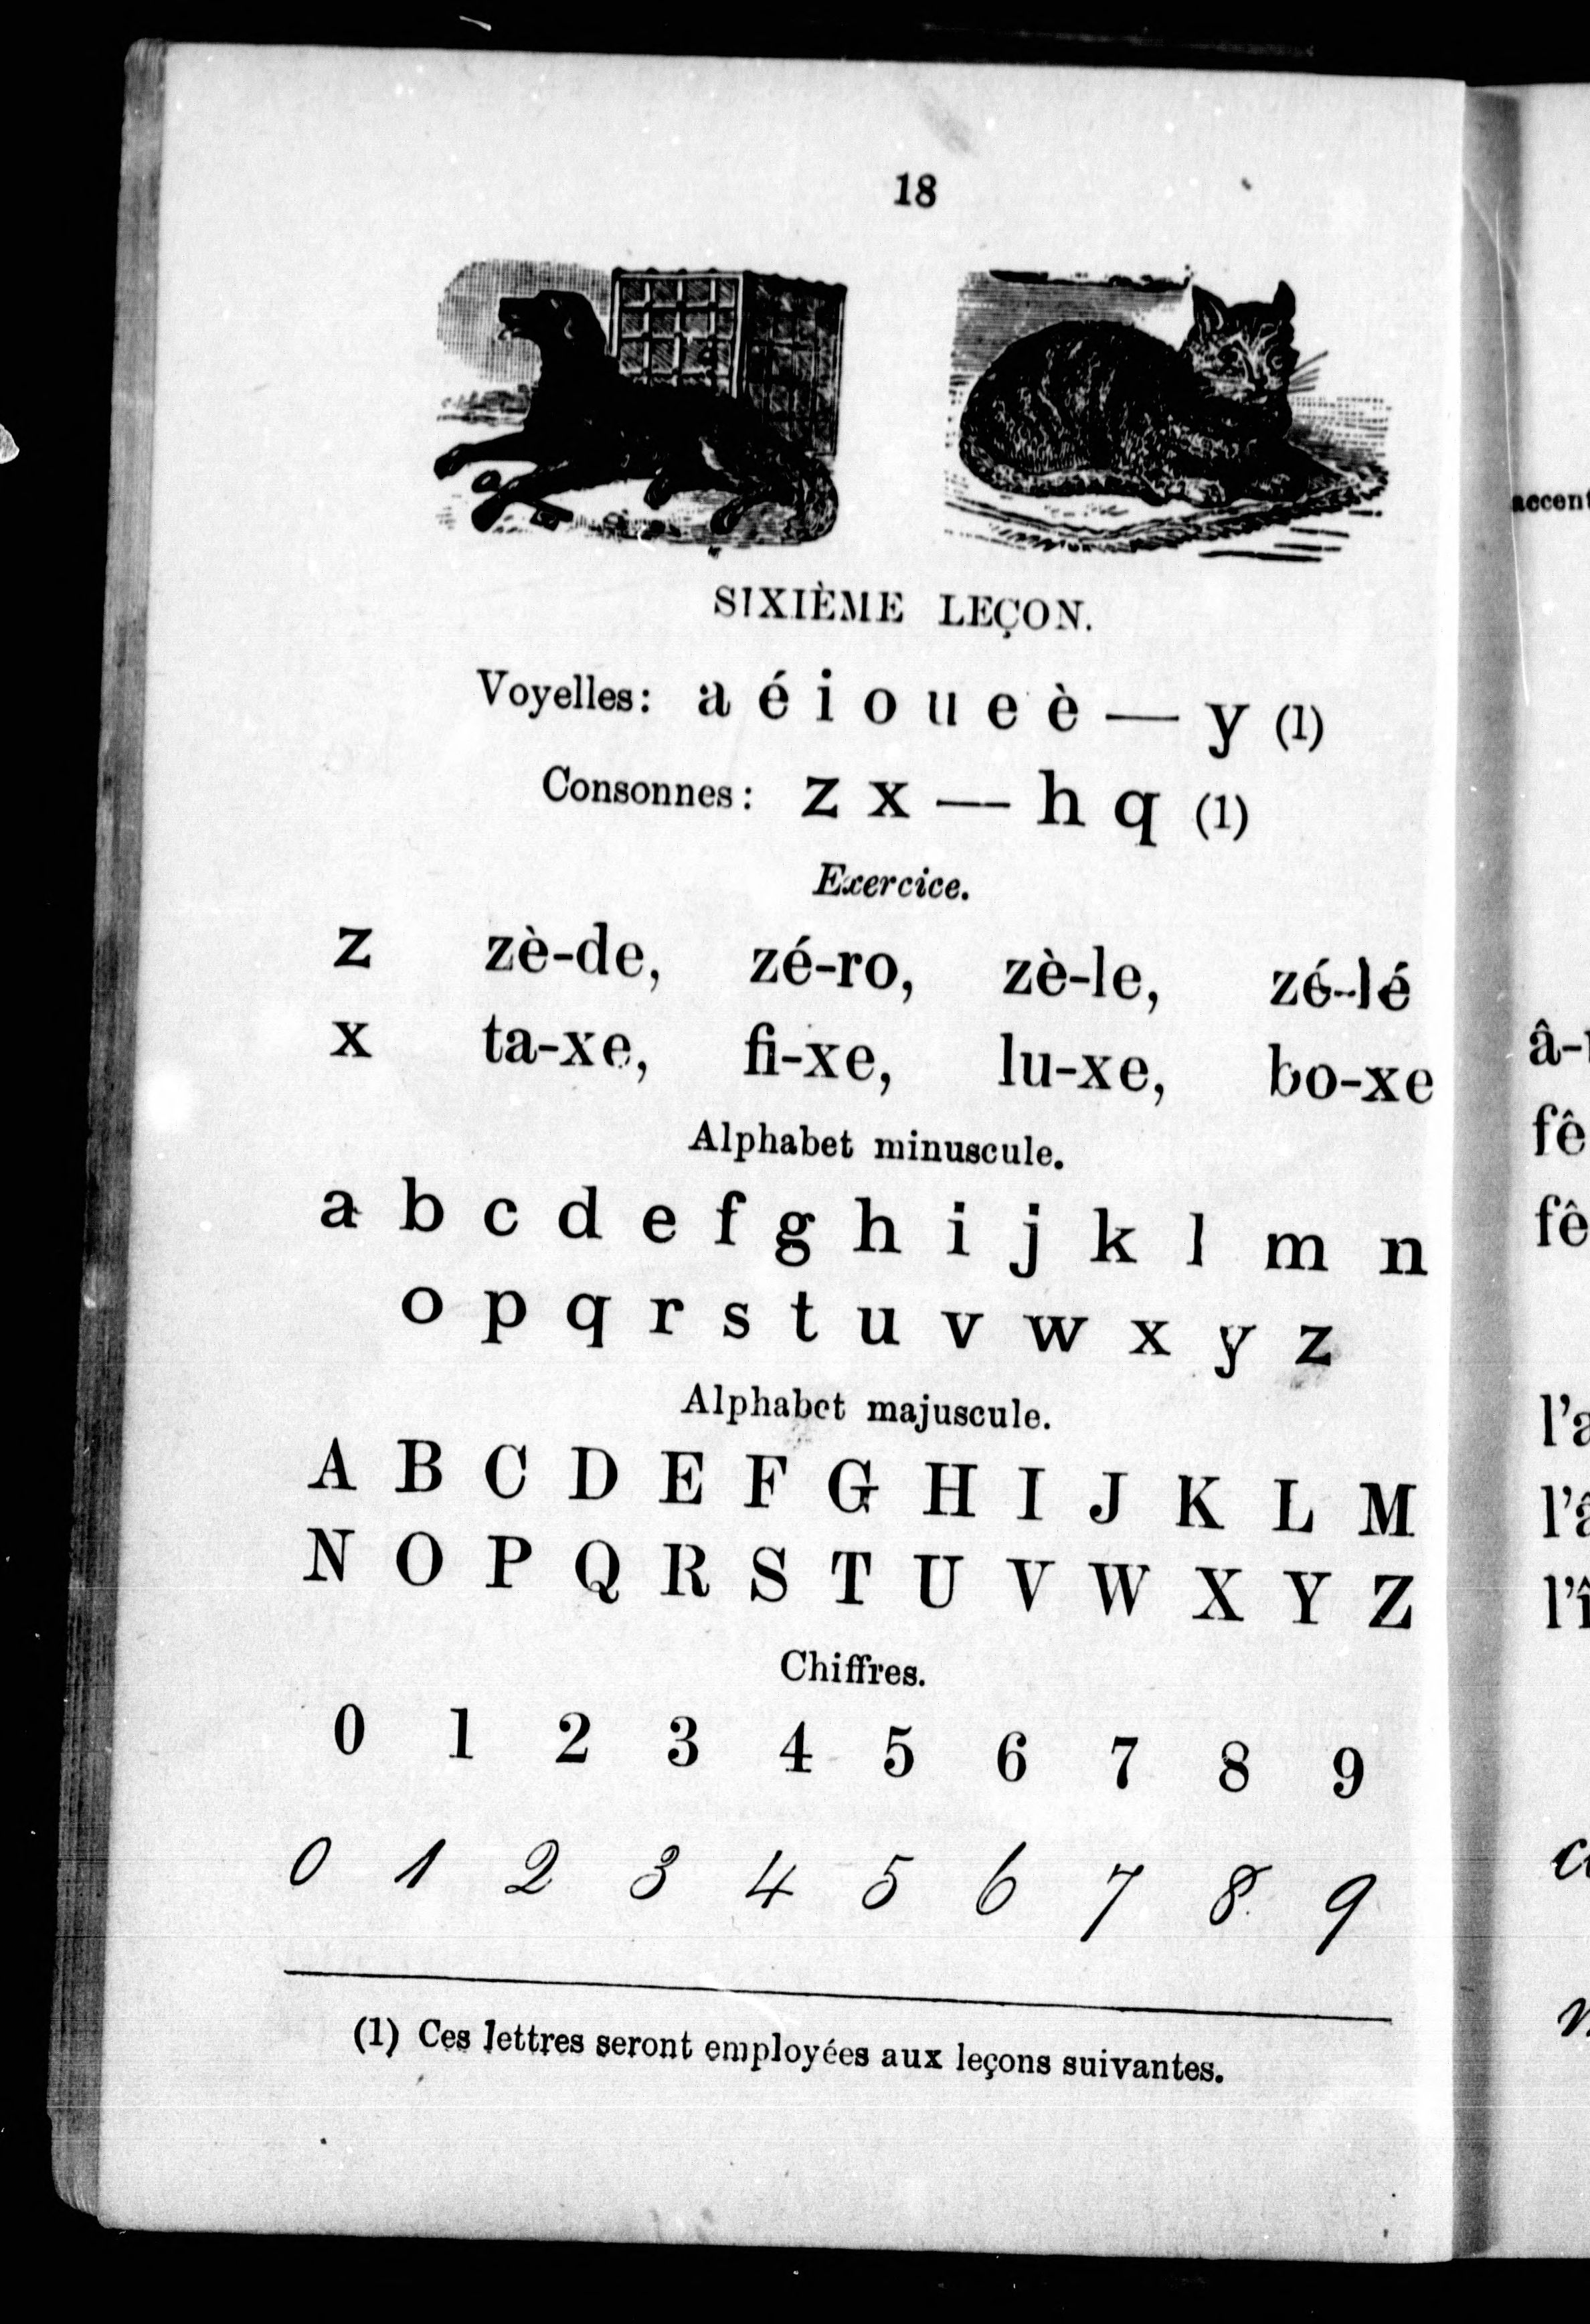 18
SIXIÈME LEÇON.
Voyelles: a é i o u e è — y (1)
Consonnes: z x — h q (1)
Exercice.
z zè-de, zé-ro, zè-le, zé-lé
x ta-xe, fi-xe, lu-xe, bo-xe
Alphabet minuscule.
a b c d e f g h i j k l m n
o p q r s t u v w x y z
Alphabet majuscule.
A B C D E F G H I J K L M
N O P Q R S T U V W X Y Z
Chiffres.
0 1 2 3 4 5 6 7 8 9
0 1 2 3 4 5 6 7 8 9
(1) Ces lettres seront employées aux leçons suivantes.
accent
â-
fê
fê
l'a
l'â
l'î